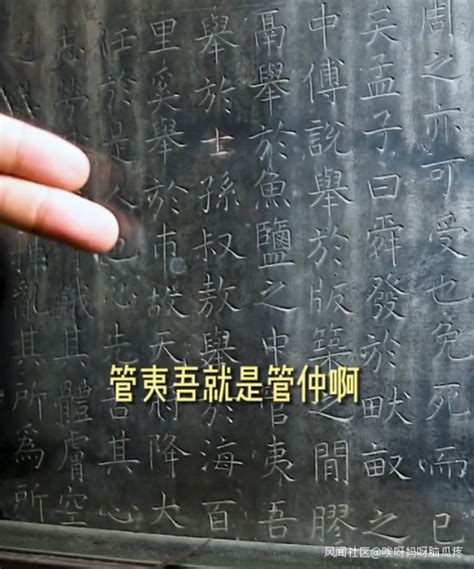 周之亦可受也免死而已
矣孟子曰舜發於畎畝之
中傅說舉於版築之間膠
鬲舉於魚鹽之中管夷吾
舉於士孫叔敖舉於海百
里奚舉於市故天將降大
任於是人也必先苦其心
志勞餓其體膚空
拂亂其所為所
管夷吾就是管仲啊
风闻社区@唉呀妈呀脑瓜疼